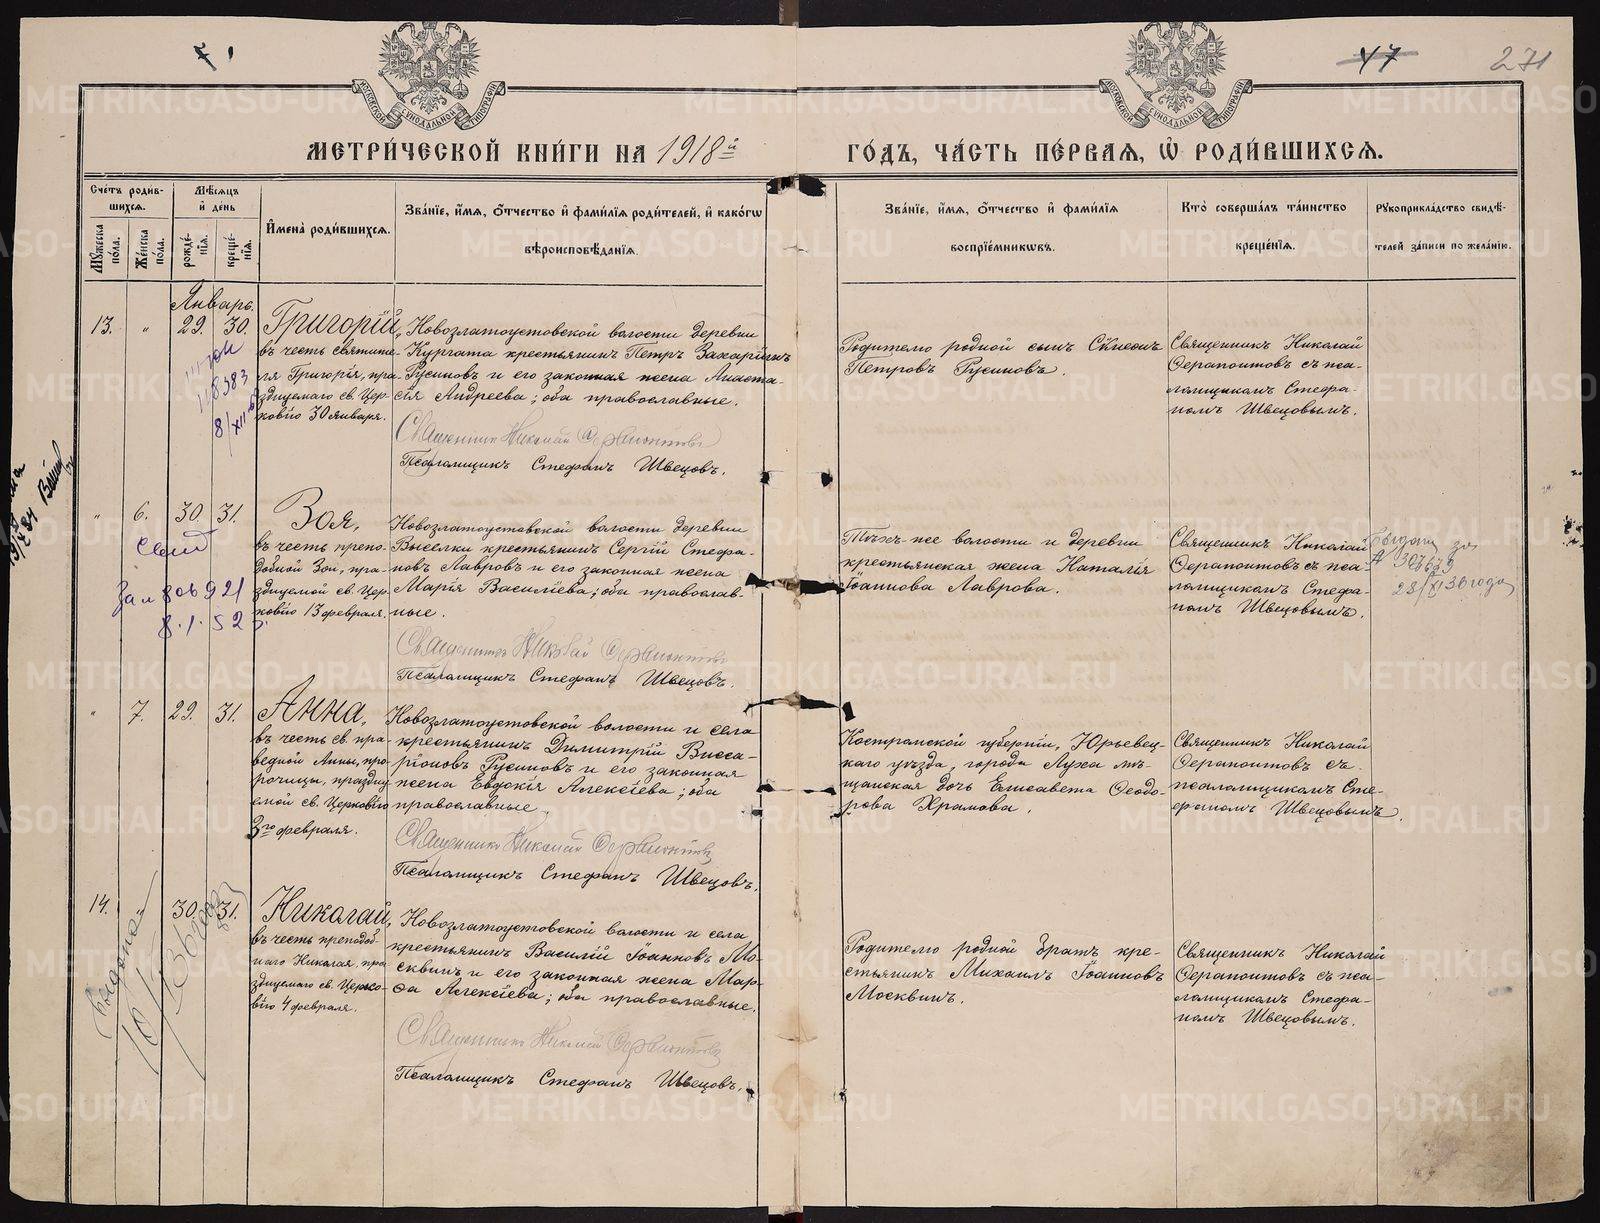 271
МЕТРИ́ЧЕСКОЙ КНИ́ГИ НА 1918й ГО́ДЪ, ЧА́СТЬ ПЕ́РВАѦ, Ѡ҆ РОДИ́ВШИХСѦ.
Сче́тъ роди́в-
шихсѧ.
Му́жеска по́ла.
Же́нска по́ла.
Мѣ́сѧцъ
и҆ де́нь
рожде́-
нїѧ.
креще́-
нїѧ.
И҆мена̀ роди́вшихсѧ.
Зва́нїе, и҆́мѧ, ѻ҆́тчество и҆ фами́лїѧ роди́телей, и҆ како́гѡ
вѣроисповѣ́данїѧ.
Зва́нїе, и҆́мѧ, ѻ҆́тчество и҆ фами́лїѧ
воспрїе́мниковъ.
Кто̀ соверша́лъ та́инство
креще́нїѧ.
Рꙋкоприкла́дство свидѣ́-
телей за́писи по жела́нїю.
Январь.
13. „ 29. 30.
Григорій,
въ честь святите-
ля Григорія, пра-
зднуемаго св. Цер-
ковію 30 января.
Новозлатоустовской волости деревни
Кургата крестьянинъ Петръ Захаріинъ
Русиновъ и его законная жена Анаста-
сія Андреева; оба православные.
Священникъ Николай Ферапонтовъ
Псаломщикъ Стефанъ Швецовъ.
Родителю родной сынъ Сѵмеонъ
Петровъ Русиновъ.
Священникъ Николай
Ферапонтовъ съ пса-
ломщикомъ Стефа-
номъ Швецовымъ.
„ 6. 30. 31.
Зоя,
въ честь препо-
добной Зои, пра-
зднуемой св. Цер-
ковію 13 февраля.
Новозлатоустовской волости деревни
Выселки крестьянинъ Сергій Стефа-
новъ Лавровъ и его законная жена
Марія Василіева; оба православ-
ные.
Священникъ Николай Ферапонтовъ
Псаломщикъ Стефанъ Швецовъ.
Тѣхъ-же волости и деревни
крестьянская жена Наталія
Іоаннова Лаврова.
Священникъ Николай
Ферапонтовъ съ пса-
ломщикомъ Стефа-
номъ Швецовымъ.
8.1.52
„ 7. 29. 31.
Анна,
въ честь св. пра-
ведной Анны, про-
рочицы, праздну-
емой св. Церковію
3го февраля.
Новозлатоустовской волости и села
крестьянинъ Димитрій Висса-
ріоновъ Русиновъ и его законная
жена Евдокія Алексіева; оба
православные.
Священникъ Николай Ферапонтовъ
Псаломщикъ Стефанъ Швецовъ.
Костромской губерніи, Юрьевец-
каго уѣзда, города Луха мѣ-
щанская дочь Елисавета Ѳеодо-
рова Храмова.
Священникъ Николай
Ферапонтовъ съ
псаломщикомъ Сте-
фаномъ Швецовымъ.
14. 30. 31.
Николай,
въ честь преподоб-
наго Николая, пра-
зднуемаго св. Церко-
вію 4 февраля.
Новозлатоустовской волости и села
крестьянинъ Василій Іоанновъ Мо-
сквинъ и его законная жена Мар-
ѳа Алексіева; оба православные.
Священникъ Николай Ферапонтовъ
Псаломщикъ Стефанъ Швецовъ.
Родителю родной братъ кре-
стьянинъ Михаилъ Іоанновъ
Москвинъ.
Священникъ Николай
Ферапонтовъ съ пса-
ломщикомъ Стефа-
номъ Швецовымъ.
METRIKI.GASO-URAL.RU